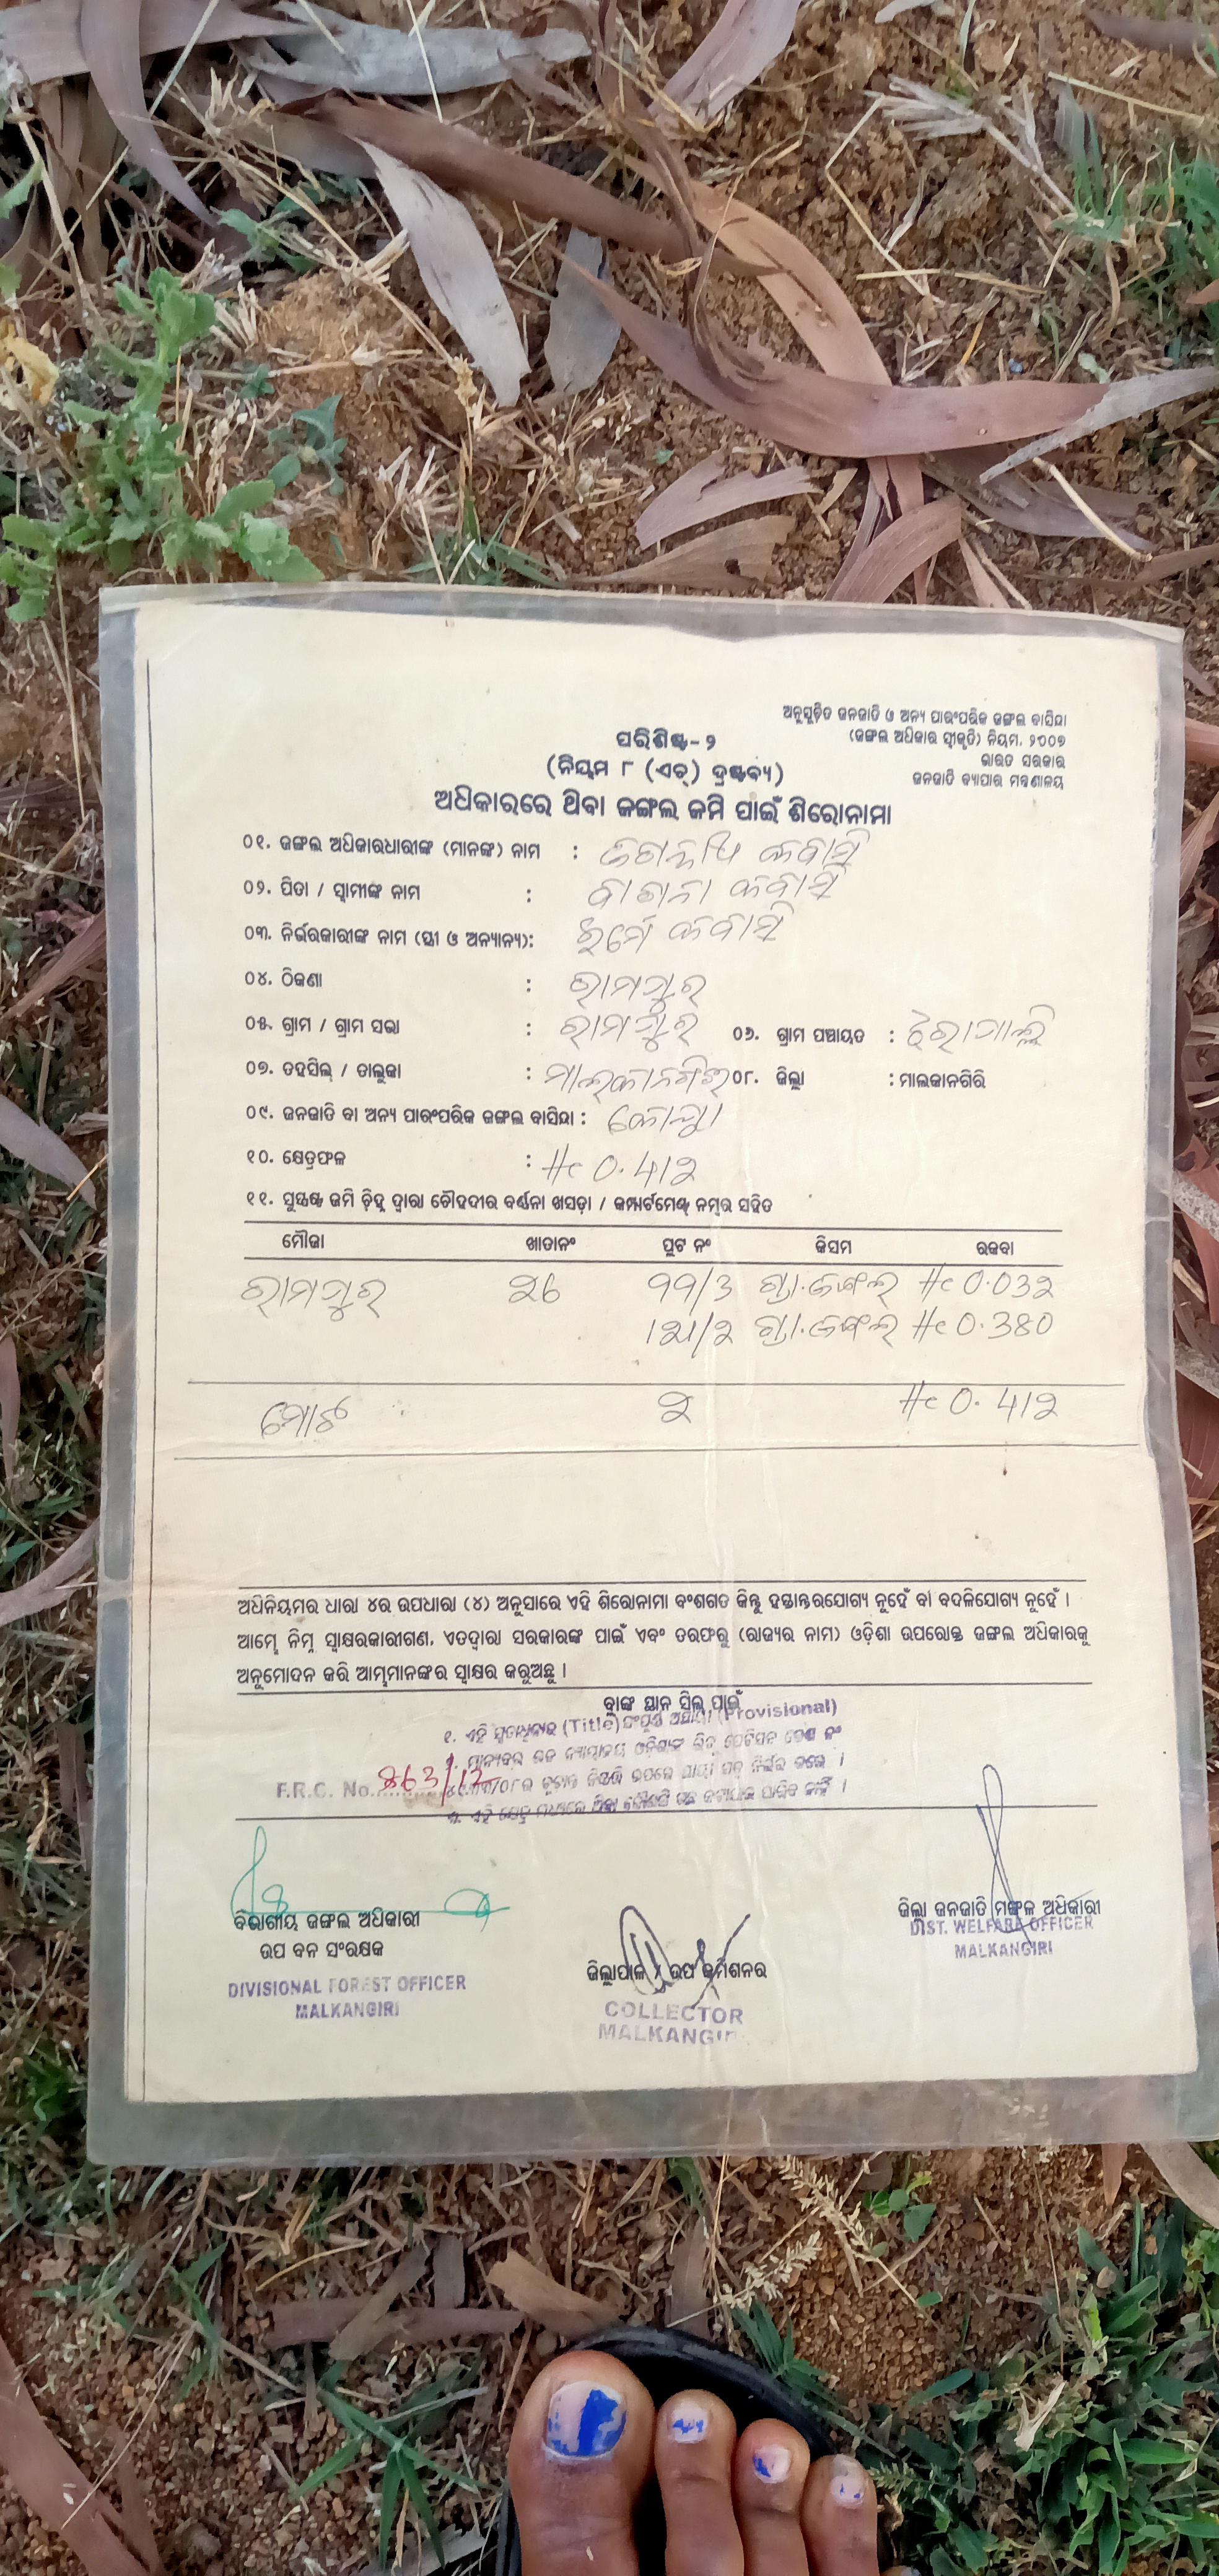 ଅନୁସୂଚିତ ଜନଜାତି ଓ ଅନ୍ୟ ପାରଂପରିକ ଜଙ୍ଗଲ ବାସିନ୍ଦା
(ଜଙ୍ଗଲ ଅଧିକାର ସ୍ୱୀକୃତି) ନିୟମ, ୨୦୦୭
ଭାରତ ସରକାର
ଜନଜାତି ବ୍ୟାପାର ମନ୍ତ୍ରଣାଳୟ
ପରିଶିଷ୍ଟ-୨
(ନିୟମ ୮ (ଏଚ୍) ଦ୍ରଷ୍ଟବ୍ୟ)
ଅଧିକାରରେ ଥିବା ଜଙ୍ଗଲ ଜମି ପାଇଁ ଶିରୋନାମା
୦୧. ଜଙ୍ଗଲ ଅଧିକାରଧାରୀଙ୍କ (ମାନଙ୍କ) ନାମ : ଜଗନ୍ନାଥ କବାସି
୦୨. ପିତା / ସ୍ୱାମୀଙ୍କ ନାମ : କବାସି
୦୩. ନିର୍ଭରକାରୀଙ୍କ ନାମ (ସ୍ତ୍ରୀ ଓ ଅନ୍ୟାନ୍ୟ): କବାସି
୦୪. ଠିକଣା : ରାମପୁର
୦୫. ଗ୍ରାମ / ଗ୍ରାମ ସଭା : ରାମପୁର ୦୬. ଗ୍ରାମ ପଞ୍ଚାୟତ :
୦୭. ତହସିଲ୍ / ତାଲୁକା : ମାଲକାନଗିରି ୦୮. ଜିଲ୍ଲା : ମାଲକାନଗିରି
୦୯. ଜନଜାତି ବା ଅନ୍ୟ ପାରଂପରିକ ଜଙ୍ଗଲ ବାସିନ୍ଦା : କୋୟା
୧୦. କ୍ଷେତ୍ରଫଳ : Hc ୦.୪୧୨
୧୧. ସୁସ୍ପଷ୍ଟ ଜମି ଚିହ୍ନ ଦ୍ୱାରା ଚୌହଦୀର ବର୍ଣ୍ଣନା ଖସଡ଼ା / କମ୍ପାର୍ଟମେଣ୍ଟ ନମ୍ବର ସହିତ
ମୌଜା ଖାତାନଂ ପ୍ଲଟ ନଂ କିସମ ରକବା
ରାମପୁର ୨୬ ୭୭/୩ ଗ୍ରା.ଜଙ୍ଗଲ Hc ୦.୦୩୨
ଗ୍ରା.ଜଙ୍ଗଲ Hc ୦.୩୮୦
ମୋଟ ୨ Hc ୦.୪୧୨
ଅଧିନିୟମର ଧାରା ୪ର ଉପଧାରା (୪) ଅନୁସାରେ ଏହି ଶିରୋନାମା ବଂଶଗତ କିନ୍ତୁ ହସ୍ତାନ୍ତରଯୋଗ୍ୟ ନୁହେଁ ବା ବଦଳିଯୋଗ୍ୟ ନୁହେଁ ।
ଆମ୍ଭେ ନିମ୍ନ ସ୍ୱାକ୍ଷରକାରୀଗଣ, ଏତଦ୍ୱାରା ସରକାରଙ୍କ ପାଇଁ ଏବଂ ତରଫରୁ (ରାଜ୍ୟର ନାମ) ଓଡ଼ିଶା ଉପରୋକ୍ତ ଜଙ୍ଗଲ ଅଧିକାରକୁ
ଅନୁମୋଦନ କରି ଆମ୍ଭମାନଙ୍କର ସ୍ୱାକ୍ଷର କରୁଅଛୁ ।
ବ୍ଲାଙ୍କ ସ୍ଥାନ ସିଲ୍ ପାଇଁ
୧. ଏହି (Title) (Provisional)
F.R.C. No. 863/12
ବିଭାଗୀୟ ଜଙ୍ଗଲ ଅଧିକାରୀ
ଉପ ବନ ସଂରକ୍ଷକ
DIVISIONAL FOREST OFFICER
MALKANGIRI
ଜିଲ୍ଲାପାଳ / ଉପ କମିଶନର
COLLECTOR
MALKANGIRI
ଜିଲ୍ଲା ଜନଜାତି ମଙ୍ଗଳ ଅଧିକାରୀ
DIST. WELFARE OFFICER
MALKANGIRI